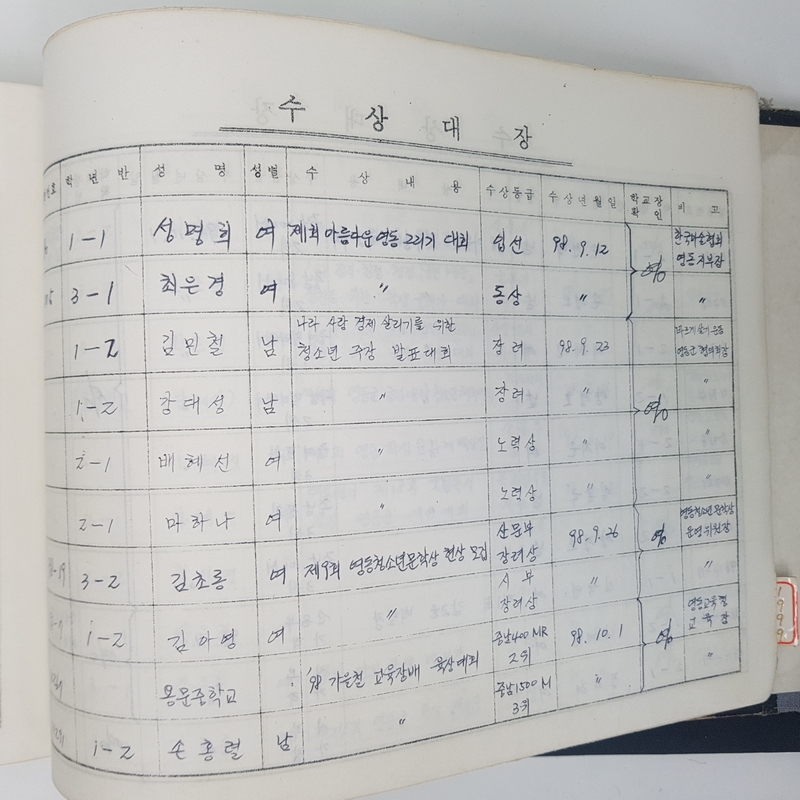 수 상 대 장
학 년 반 성 명 성별 수 상 내 용 수상등급 수 상 년 월 일 학교장 확 인 비 고
1-1 성명희 여 제1회 아름다운 영동 그리기 대회 입선 98. 9. 12 한국미술협회 영동지부장
3-1 최은경 여 〃 동상 〃 〃
1-2 김민철 남 나라 사랑 경제 살리기를 위한 청소년 주장 발표대회 장려 98. 9. 23 바르게살기운동 영동군협의회장
1-2 강대성 남 〃 장려 〃 〃
2-1 배혜선 여 〃 노력상 〃 〃
2-1 마하나 여 〃 노력상
3-2 김초롱 여 제9회 영동청소년문학상 현상 모집 산문부 장려상 98. 9. 26 영동청소년문학상 운영위원장
1-2 김아영 여 〃 시부 장려상 〃 〃
용문중학교 '98 가을철 교육장배 육상대회 중남400MR 2위 98. 10. 1 영동교육청 교육장
1-2 손홍렬 남 〃 중남1500M 3위 〃 〃
1999